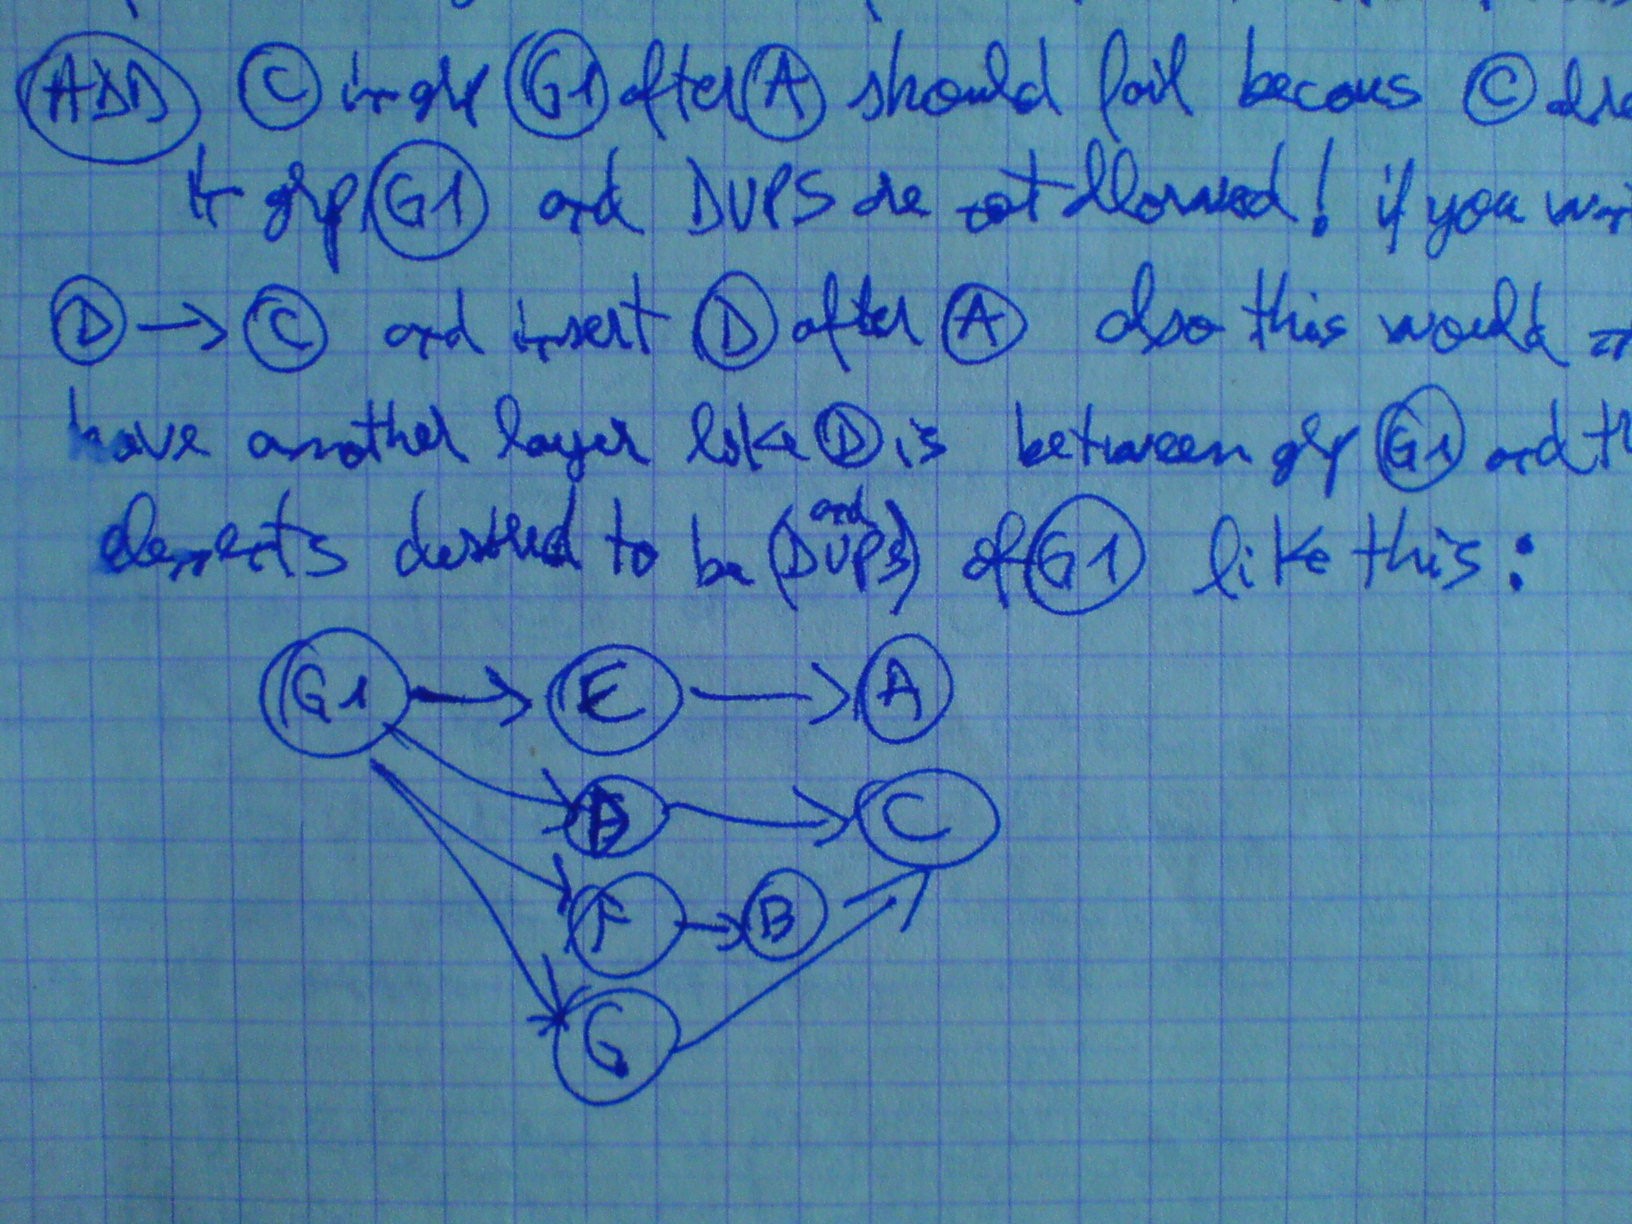 ADD C in grp G1 after A should fail becaus C
in grp G1 and DUPS are not allowed! if you
D → C and insert D after A also this would
have another layer like D is between grp G1 and
elements desired to be (and DUPS) of G1 like this:
G1 → E → A
D → C
F → B
G